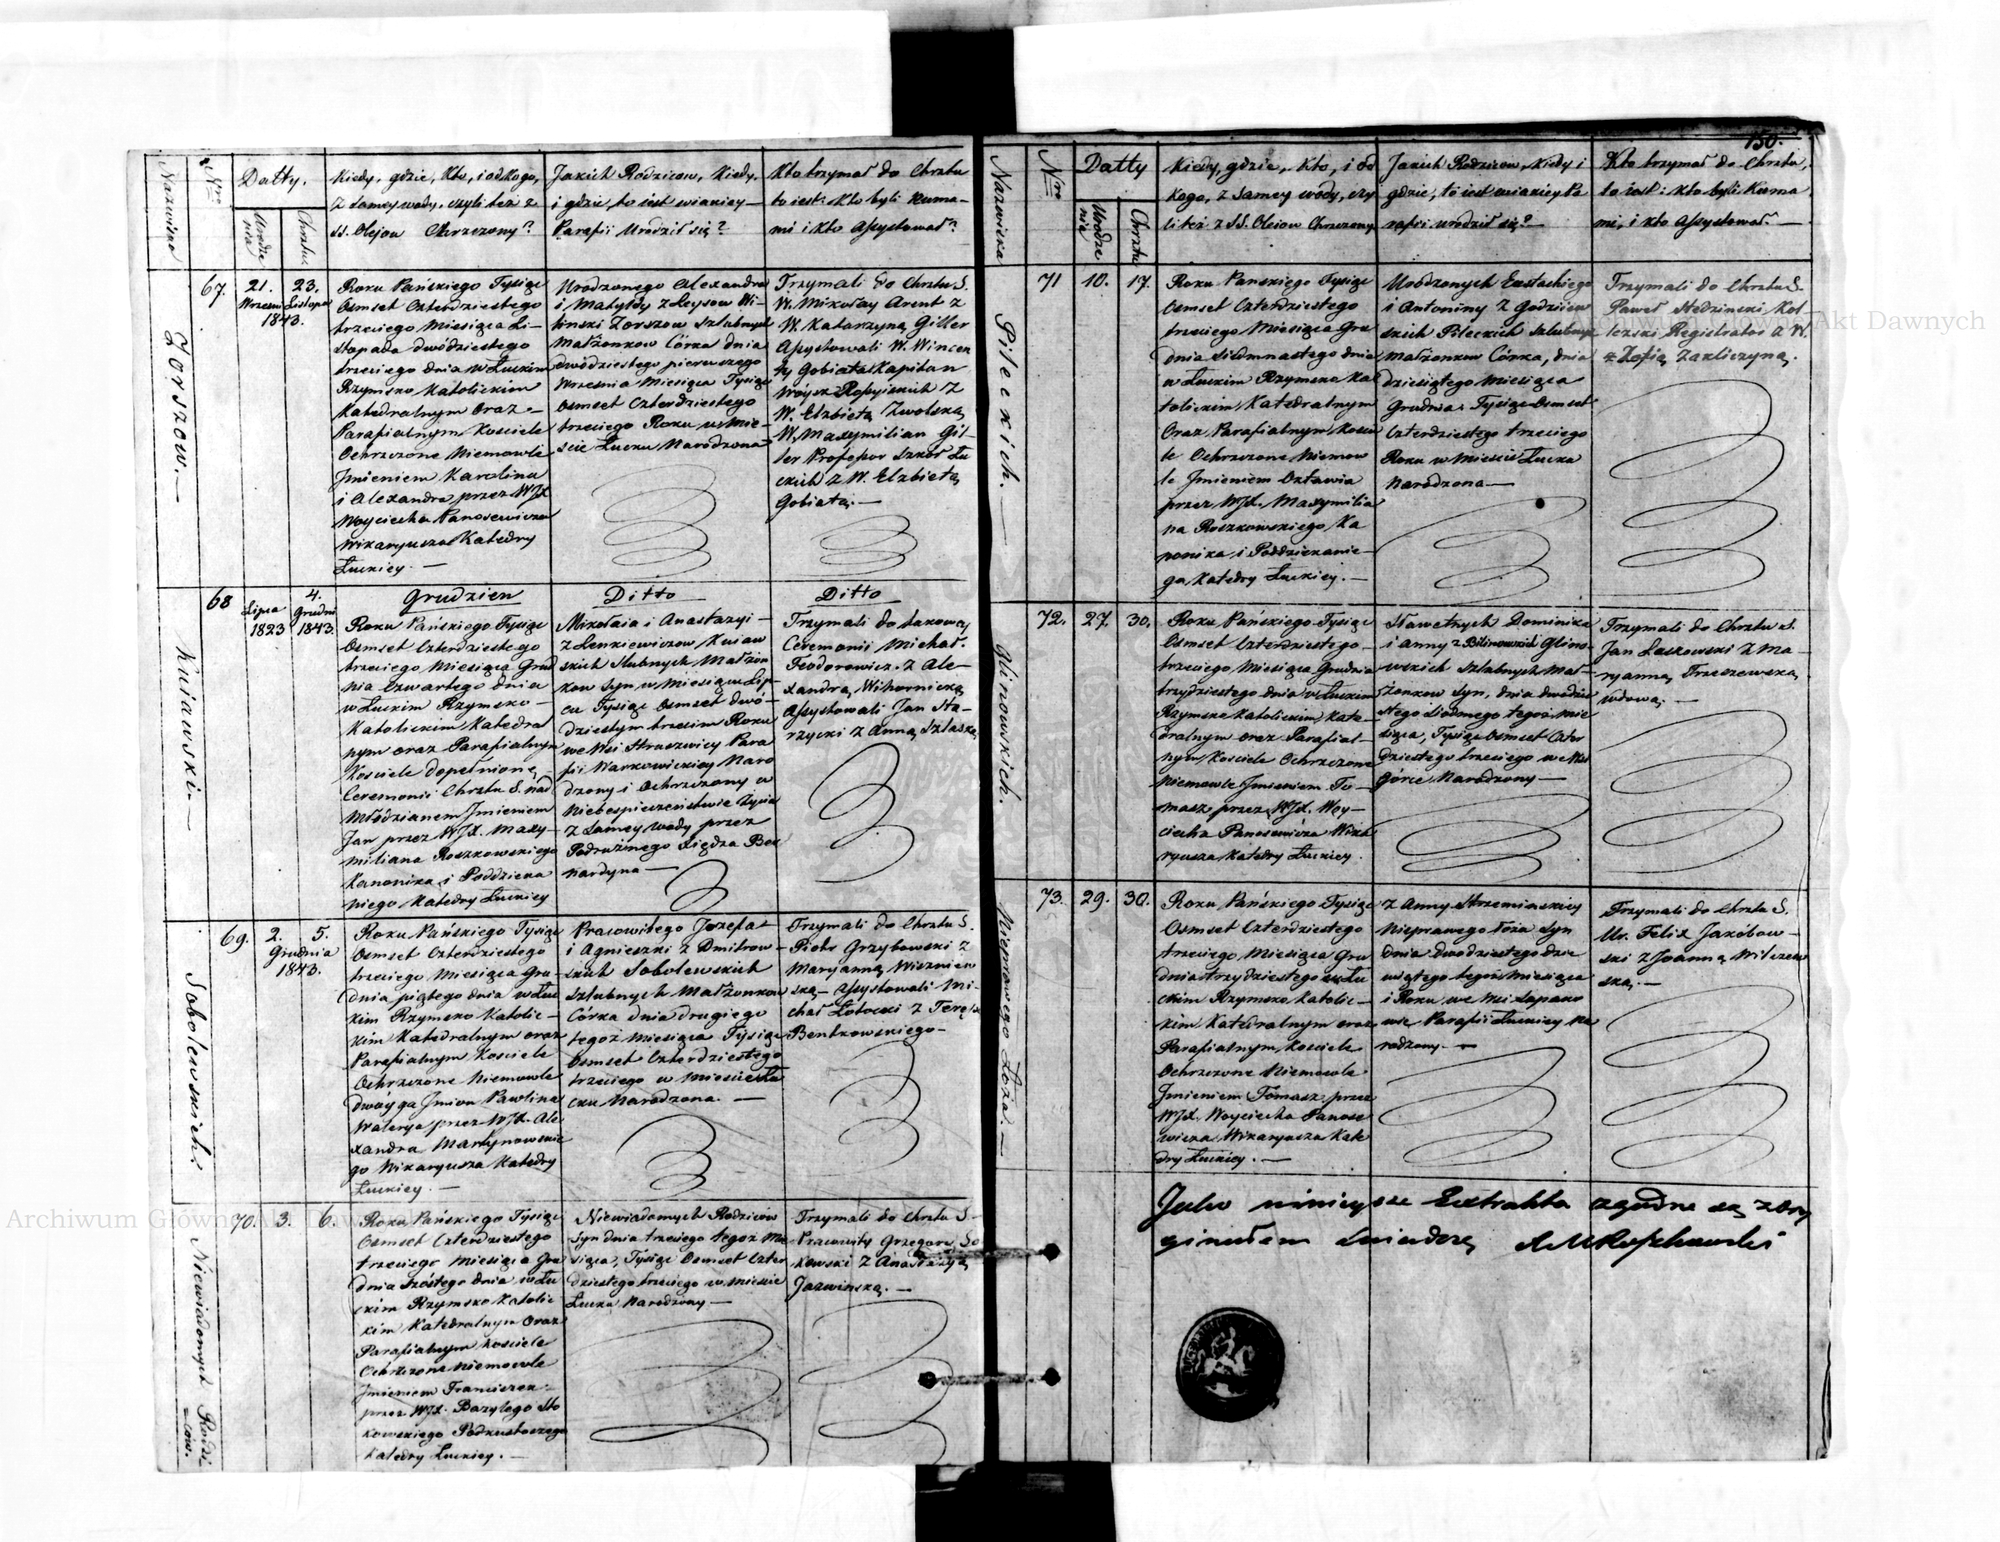 150.
Nazwiska
Nro
Datty.
Urodze
nia
Chrztu
Kiedy, gdzie, Kto, i od kogo,
z samey wody, czyli też z
SS. Olejow Chrzczony?
Jakich Rodzicow, Kiedy,
i gdzie, to iest w iakiey
Parafii Urodził się?
Kto trzymał do Chrztu
to iest: Kto byli Kuma-
mi i Kto Assystował?
Zorszow.—
67.
21. 23.
Wrzesn Listopa
1843.
Roku Pańskiego Tysiąc
Osmset Czterdziestego
trzeciego Miesiąca Li-
stopada dwódziestego
trzeciego dnia w Łuckim
Rzymsko Katolickim
Katedralnym oraz
Parafialnym Kosciele
Ochrzczone Niemowle
Jmieniem Karolina
i Alexandra przez WJX
Woyciecha Panasewicza
Wikaryusza Katedry
Łuckiey.—
Urodzonego Alexandra
i Matyldy z Leysow Wi-
linski Zorszow Szlubnych
Małżonkow Córka dnia
dwódziestego pierwszego
Wrzesnia Miesiąca Tysiąc
Osmset Czterdziestego
trzeciego Roku w Mie-
scie Łucku Narodzona
Trzymali do Chrztu S.
W. Mikołay Arent z
W. Katarzyną Giller
Assystowali W. Wincen
ty Gobiata Kapitan
Woysk Rossyiskich z
W. Elzbietą Zwolską,
W. Maxymilian Gil-
ler Professor Szkół Łu
ckich z W. Elzbietą
Gobiatą.—
Kuiawski—
68
Lipca
1823
4.
Grudni
1843.
Grudzien
Roku Pańskiego Tysiąc
Osmset Czterdziestego
trzeciego Miesiąca Grud
nia Czwartego dnia
w Łuckim Rzymsko-
Katolickim Katedral
nym oraz Parafialnym
Kosciele dopełnione
Ceremonii Chrztu S. nad
Młodzianem Jmieniem
Jan przez WJX. Maxy-
miliana Roszkowskiego
Kanonika i Poddzieka
niego Katedry Łuckiey
Ditto
Mikołaia i Anastazyi-
z Lenkiewiczow Kuiaw
skich Slubnych Małżon
kow Syn w Miesiącu Lip-
cu Tysiąc Osmset dwó-
dziestym trzecim Roku
we Wsi Straszwicy Para
fii Warkowickiey Naro
dzony i Ochrzczony w
Niebespieczeństwie Życia
z Samey Wody przez
Podrużnego Xiędza Ber
nardyna—
Ditto
Trzymali do takowey
Ceremonii Michał
Teodorowicz z Ale-
xandrą Wihornicką
Assystowali Jan Sta-
rzycki z Anną Szlaską
Sobolewskich.
69.
2. 5.
Grudnia
1843.
Roku Pańskiego Tysiąc
Osmset Czterdziestego
trzeciego Miesiąca Gru-
dnia piątego dnia w Łuc
kim Rzymsko Katolic-
kim Katedralnym oraz
Parafialnym Kosciele
Ochrzczone Niemowle
dwóyga Jmion Pawlina
Waleryia przez WJX. Ale
xandra Martynowskie
go Wikaryusza Katedry
Łuckiey.—
Pracowitego Jozefa
i Agnieszki z Dmitrow-
skich Sobolewskich
Szlubnych Małżonkow
Córka dnia drugiego
tegoż Miesiąca Tysiąc
Osmset Czterdziestego
trzeciego w Miescie Łu
cku Narodzona.—
Trzymali do Chrztu S.
Piotr Grzybowski z
Maryanną Wiszniew
ską— Assystowali Mi-
chał Łotocki z Teręsą
Bentkowskiego-
Niewiadomych Rodzi
cow.
70.
3. 6.
Roku Pańskiego Tysiąc
Osmset Czterdziestego
trzeciego Miesiąca Gru
dnia szóstego dnia w Łu
ckim Rzymsko Katolic
kim Katedralnym oraz
Parafialnym Kosciele
Ochrzczone Niemowle
Jmieniem Franciszek
przez WJX. Bazylego Sło
kowskiego Podkustoszego
Katedry Łuckiey.—
Niewiadomych Rodzicow
Syn dnia trzeciego tegoż Mie
siąca, Tysiąc Osmset Czter
dziestego trzeciego w Miescie
Łucku Narodzony—
Trzymali do Chrztu S.
Pracowity Grzegorz So
kowski z Anastazyą
Jazwinską.—
Nazwiska
Nro
Datty
Urodze
nia
Chrztu
Kiedy, gdzie, Kto, i od
kogo, z samey wody, czy
li też z SS. Olejow Chrzczony
Jakich Rodzicow, Kiedy i
gdzie, to iest w iakiey Pa
rafii urodził się?—
Kto trzymał do Chrztu,
to iest: kto byli Kuma
mi, i kto Assystował.—
Pileckich.—
71
10. 17.
Roku Pańskiego Tysiąc
Osmset Czterdziestego
trzeciego Miesiąca Gru
dnia siedmnastego dnia
w Łuckim Rzymsko Ka
tolickim Katedralnym
Oraz Parafialnym Kosciele
le Ochrzczone Niemow
le Jmieniem Oktawia
przez WJX. Maxymilia
na Roszkowskiego Ka
nonika i Poddziekanie-
go Katedry Łuckiey.—
Urodzonych Eustachiego
i Antoniny z Godziiew
skich Pileckich Szlubnych
Małżonkow Córka, dnia
dziesiątego Miesiąca
Grudnia Tysiąc Osmset
Czterdziestego trzeciego
Roku w Miescie Łucku
Narodzona—
Trzymali do Chrztu S.
Paweł Hedzinski Kol
lezski Registrator z W.
z Zofią Zakliczyną.
Glinowskich.
72.
27. 30.
Roku Pańskiego Tysiąc
Osmset Czterdziestego-
trzeciego, Miesiąca Grudnia
trzydziestego dnia w Łuckim
Rzymsko Katolickim Kate-
dralnym oraz Parafial-
nym Kosciele Ochrzczone
Niemowle Jmieniem To-
masz przez WJX. Woy-
ciecha Panasewicza Wika
ryusza Katedry Łuckiey.
Sławetnych Dominika
i Anny z Bilinowskich Glino-
wskich Szlubnych Mał-
żonkow Syn, dnia dwódzie
stego siodmego tegoż Mie
siąca, Tysiąc Osmset Czter
dziestego trzeciego we Wsi
Górce Narodzony—
Trzymali do Chrztu S.
Jan Laskowski z Ma-
ryanną Trzeszewską,
wdową.—
Nieprawego Łoża.—
73.
29. 30.
Roku Pańskiego Tysiąc
Osmset Czterdziestego
trzeciego Miesiąca Gru
dnia trzydziestego w Łu
ckim Rzymsko Katolic-
kim Katedralnym oraz
Parafialnym Kosciele
Ochrzczone Niemowle
Jmieniem Tomasz przez
WJX. Woyciecha Panase
wicza Wikaryusza Kate
dry Łuckiey.—
z Anny Strzemiaskiey
Nieprawego Łoża Syn
dnia dwódziestego dzie
wiątego tegoż Miesiąca
i Roku we Wsi Łapano
wie Parafii Łuckiey Na
rodzony.—
Trzymali do Chrztu S.
Ur. Felix Jakóbow-
ski z Joanną Milczew
ską.—
Jako ninieysze Extrakta zgodne są z Ory
ginałem świadczę
Archiwum Główne Akt Dawnych
Archiwum Główne Akt Dawnych